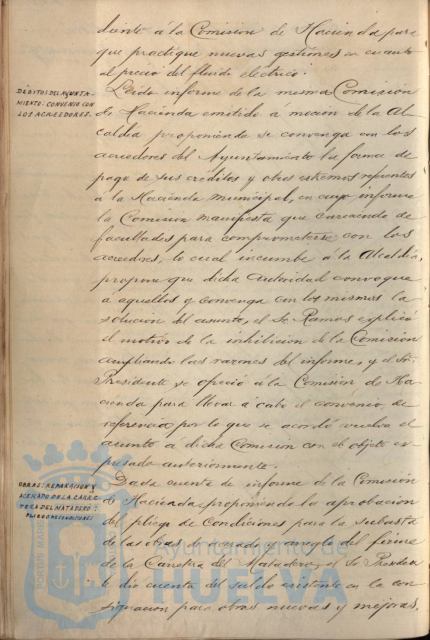 diente á la Comision de Hacienda para
que practique nuevas gestiones en cuanto
al precio del fluido eléctrico.
DÉBITOS DEL AYUNTA-
MIENTO: CONVENIO CON
LOS ACREEDORES.
Leido informe de la misma Comision
de Hacienda emitido á mocion de la Al-
caldia proponiendo se convenga con los
acreedores del Ayuntamiento la forma de
pago de sus créditos y otros estremos referentes
á la Hacienda municipal, en cuyo informe
la Comision manifiesta que careciendo de
facultades para comprometerse con los
acreedores, lo cual incumbe á la Alcaldia,
propone que dicha autoridad convoque
á aquellos y convenga con los mismos la
solucion del asunto, el Sr. Ramos esplicó
el motivo de la inhibicion de la Comision
ampliando las razones del informe, y el Sr.
Presidente se ofreció á la Comision de Ha-
cienda para llevar á cabo el convenio de
referencia por lo que se acordó vuelva el
asunto á dicha Comision con el objeto es-
presado anteriormente.
OBRAS: REPARACION Y
ACERADO DE LA CARRE-
TERA DEL MATADERO:
PLIEGO DE CONDICIONES
Dada cuenta de informe de la Comision
de Hacienda proponiendo la aprobacion
del pliego de Condiciones para la subasta
de las obras de acerado y arreglo del firme
de la Carretera del Matadero, el Sr. Presiden-
te dió cuenta del saldo existente en la con-
signacion para obras nuevas y mejoras,
Ayuntamiento de
HUELVA